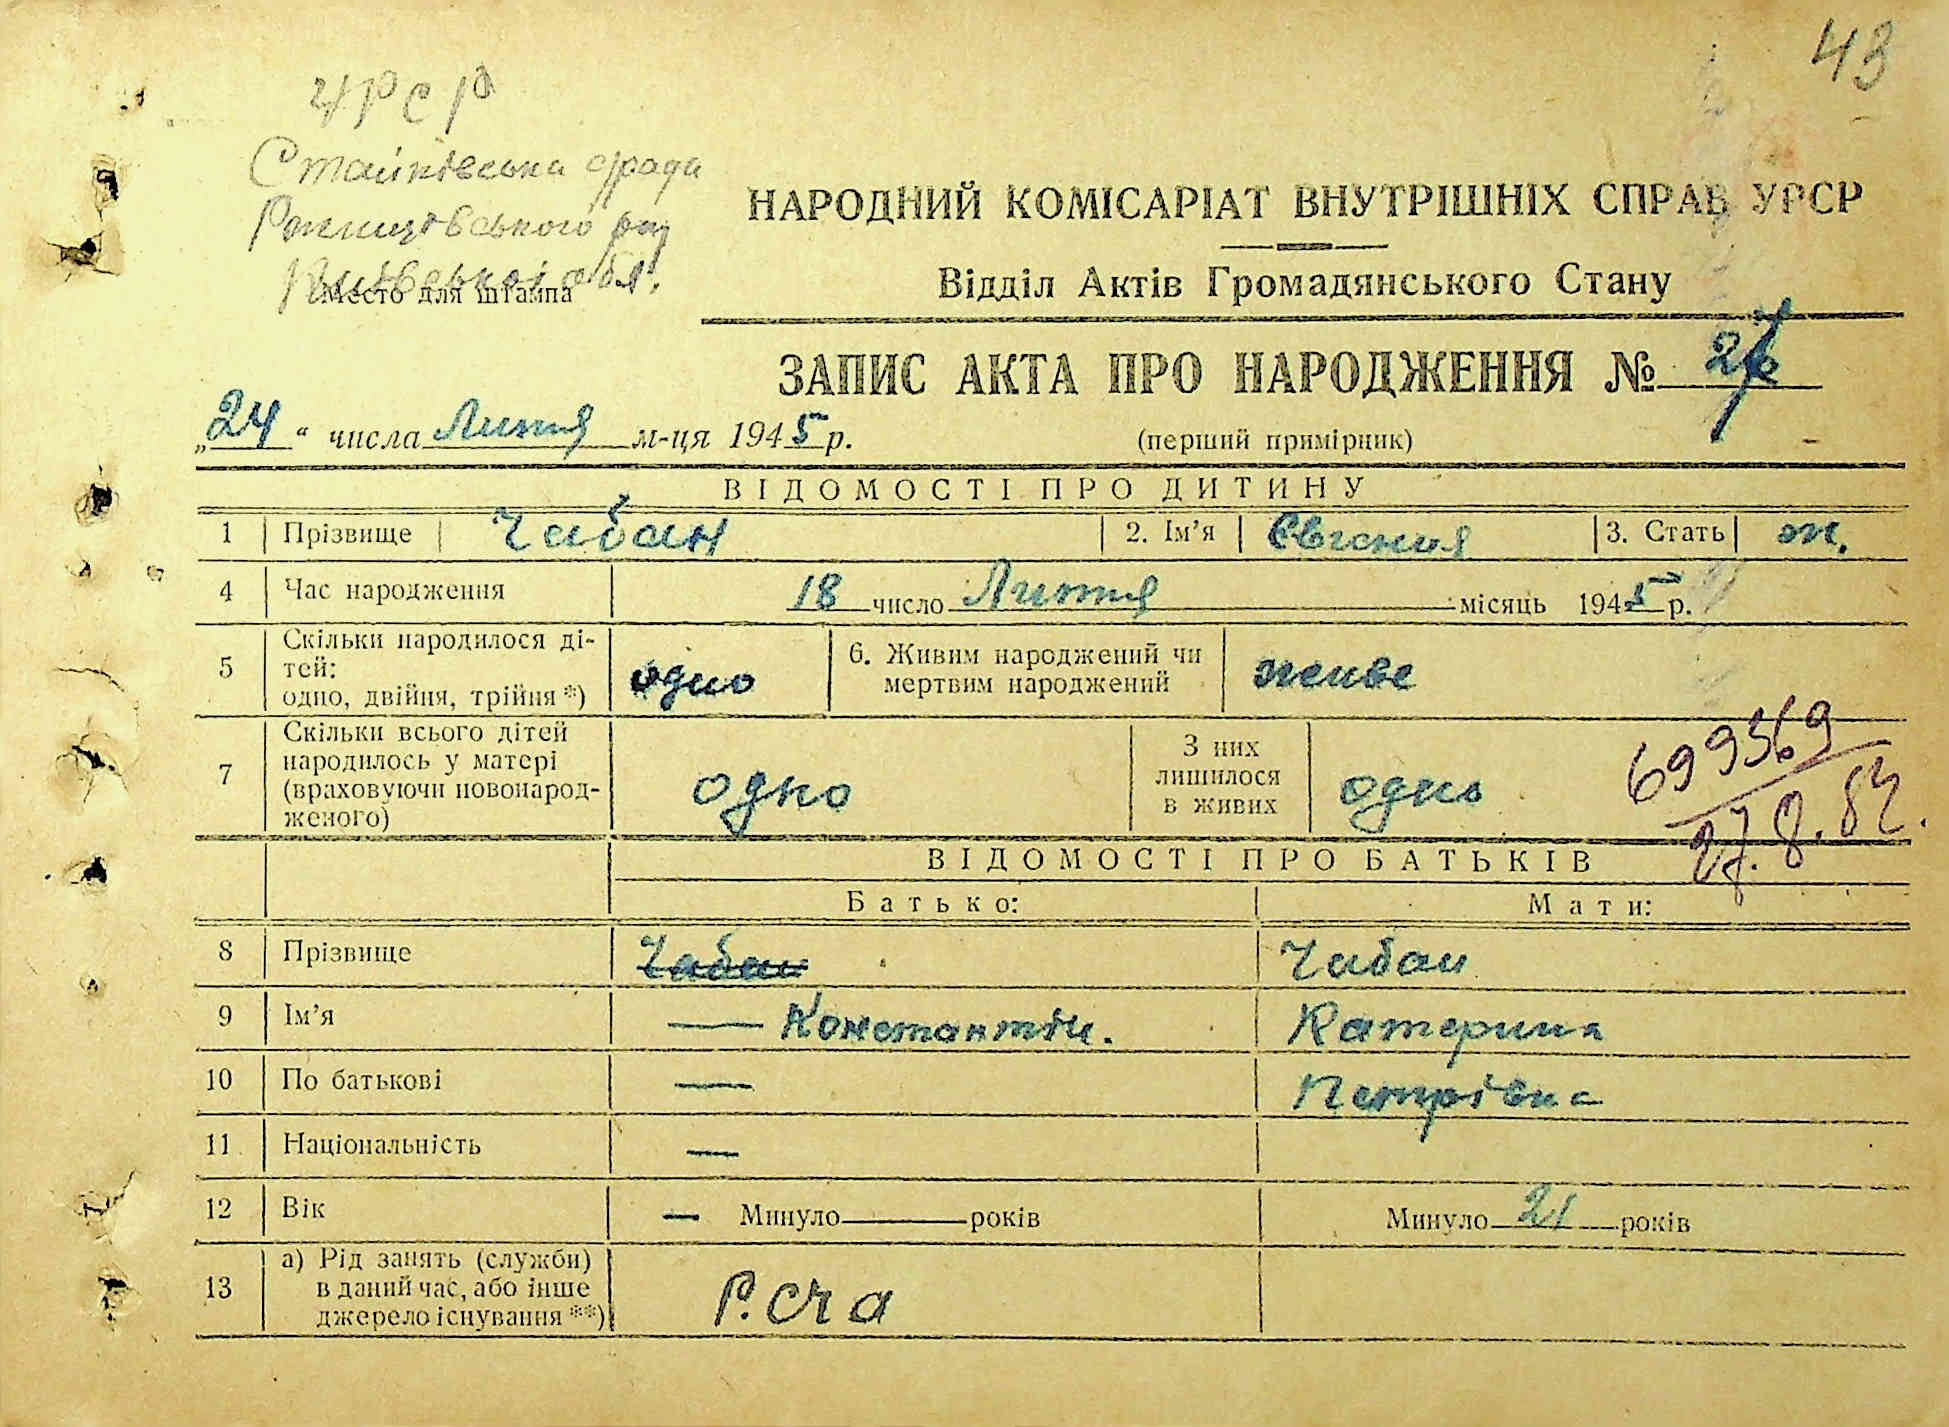 43
УРСР
Стайківська с/рада
Ржищівського р-ну
Київської обл.
Место для штампа
НАРОДНИЙ КОМІСАРІАТ ВНУТРІШНІХ СПРАВ УРСР
Відділ Актів Громадянського Стану
ЗАПИС АКТА ПРО НАРОДЖЕННЯ №
„24“ числа Липня м-ця 1945 р.
(перший примірник)
ВІДОМОСТІ ПРО ДИТИНУ
1 Прізвище Чабан 2. Ім'я Євгения 3. Стать ж.
4 Час народження 18 число Липня місяць 1945 р.
5 Скільки народилося ді-
тей:
одно, двійня, трійня *) одно 6. Живим народжений чи
мертвим народжений живе
7 Скільки всього дітей
народилось у матері
(враховуючи новонарод-
женого) одно З них
лишилося
в живих одно
699369
27.8.82.
ВІДОМОСТІ ПРО БАТЬКІВ
Батько: Мати:
8 Прізвище Чабан Чабан
9 Ім'я — Константін. Катерина
10 По батькові — Петрівна
11 Національність —
12 Вік — Минуло років Минуло 21 років
13 а) Рід занять (служби)
в даний час, або інше
джерело існування **) Р.СЧА